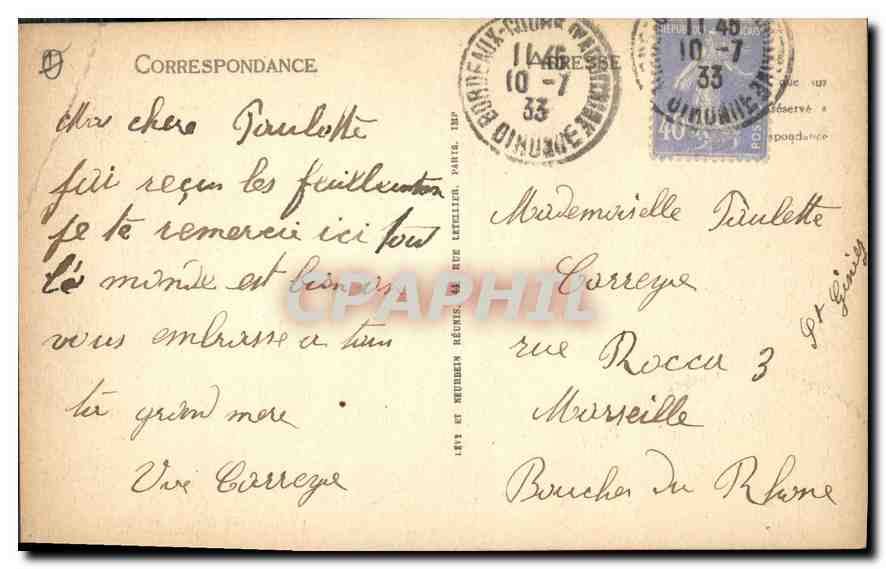 CORRESPONDANCE
Ma chere Paulette
j'ai reçus les feuilleton
je te remercie ici tous
le monde est bien on
vous embrasse a tous
ta grand mere
Vve Carreye
LÉVY ET NEURDEIN RÉUNIS, 44 RUE LETELLIER, PARIS. IMP
ADRESSE
BORDEAUX-COURS D'AQUITAINE
11 45
10 -7
33
GIRONDE
11 45
10 -7
33
GIRONDE
40
POSTES
que sur
réservé a
spondance
Mademoiselle Paulette
Carreye
rue Rocca 3
Marseille
Bouches du Rhone
St Giniez
CPAPHIL